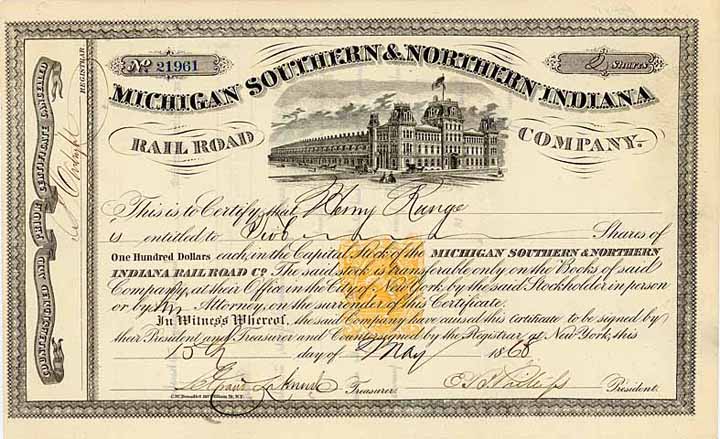 No. 21961
Shares
MICHIGAN SOUTHERN & NORTHERN INDIANA
RAIL ROAD COMPANY.
This is to Certify that Henry Runge
is entitled to Shares of
One Hundred Dollars each, in the Capital Stock of the MICHIGAN SOUTHERN & NORTHERN
INDIANA RAIL ROAD Co. The said stock is transferable only on the Books of said
Company, at their Office in the City of New York by the said Stockholder in person
or by his Attorney, on the surrender of this Certificate.
In Witness Whereof, the said Company have caused this Certificate to be signed by
their President and Treasurer and Countersigned by the Registrar at New York, this
15th day of May 1868
Treasurer. President.
COUNTERSIGNED AND PRIOR CERTIFICATE CANCELLED
REGISTRAR